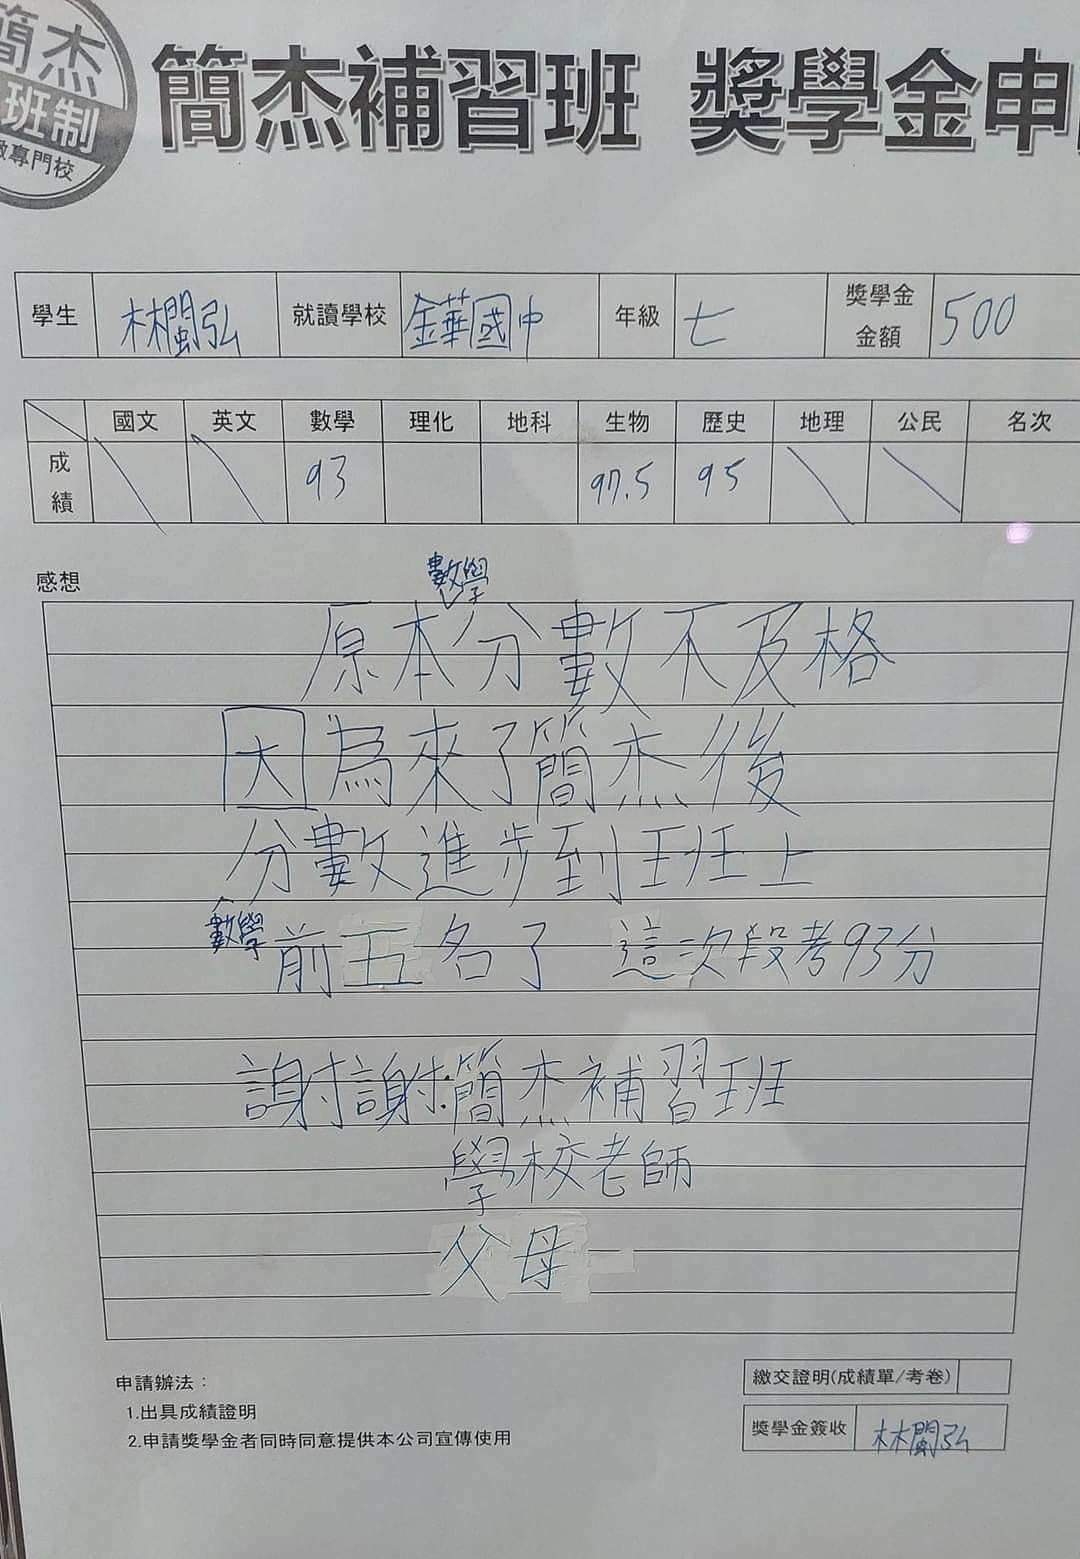 簡杰
班制
專門校
簡杰補習班 獎學金申
學生 林閩弘 就讀學校 金華國中 年級 七 獎學金金額 500
國文 英文 數學 理化 地科 生物 歷史 地理 公民 名次
成績 93 97.5 95
感想
數學
原本分數不及格
因為來了簡杰後
分數進步到班上
數學前五名了 這次段考93分
謝謝:簡杰補習班
學校老師
父母
申請辦法：
1.出具成績證明
2.申請獎學金者同時同意提供本公司宣傳使用
繳交證明(成績單/考卷)
獎學金簽收 林閩弘